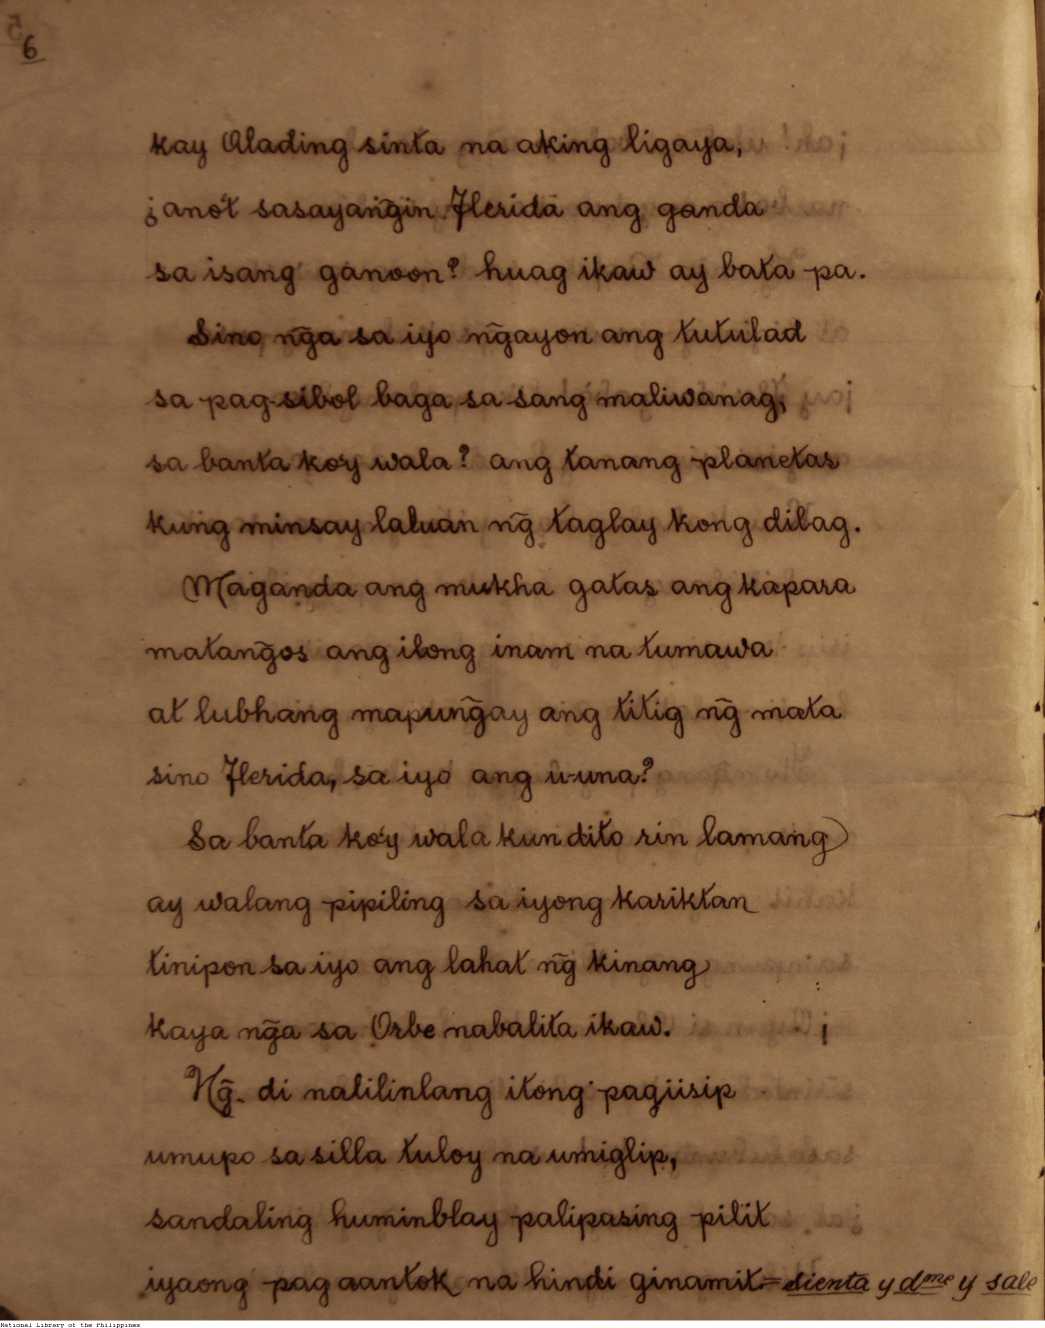 6
kay Alading sinta na aking ligaya,
¿anó't sasayang̃in Flerida ang ganda
sa isang ganoon? huag ikaw ay bata pa.
Sino ng̃a sa iyo ng̃ayon ang tutulad
sa pag-sibol baga sa sang maliwanag;
sa banta ko'y wala? ang tanang planetas
kung minsay laluan ng̃ taglay kong dilag.
Maganda ang mukha gatas ang kapara
matang̃os ang ilong inam na tumawa
at lubhang mapung̃ay ang titig ng̃ mata
sino Flerida, sa iyo ang u-una?
Sa banta ko'y wala kun dito rin lamang
ay walang pipiling sa iyong kariktan
tinipon sa iyo ang lahat ng̃ kinang
kaya ng̃a sa Orbe nabalita ikaw.
Ng̃. di nalilinlang itong pagiisip
umupo sa silla tuloy na umiglip,
sandaling huminblay palipasing pilit
iyaong pag aantok na hindi ginamit=sienta y dme y sale
National Library of the Philippines